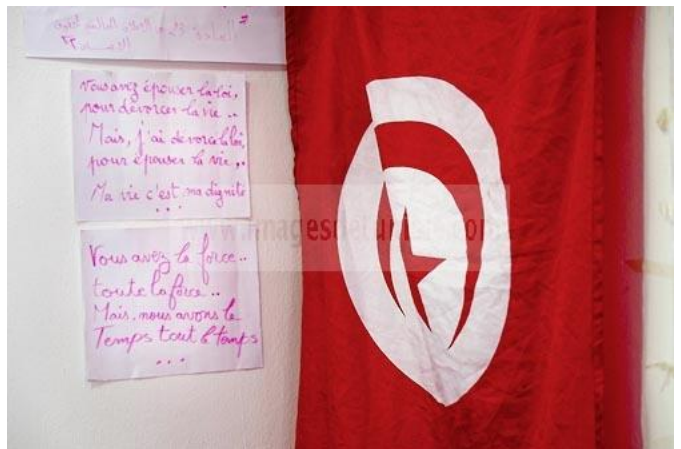 Vous avez épouser la loi,
pour dévorcer la vie..
Mais, j'ai devorcé la loi,
pour épouser la vie..
Ma vie c'est ma dignité
...
Vous avez la force..
toute la force..
Mais, nous avons le
Temps tout le temps
...
www.imagesdetunisie.com